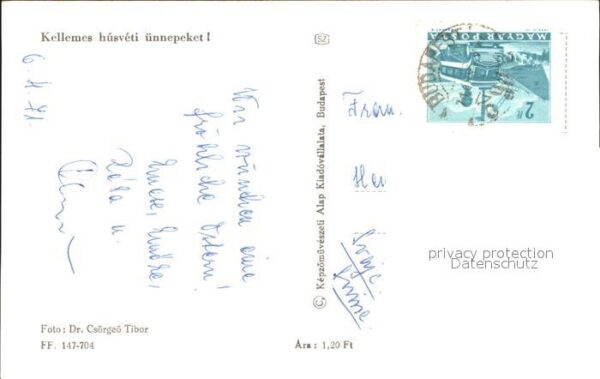 Kellemes húsvéti ünnepeket!
6.4.71.
Wir wünchen eine
fröhliche Ostern!
Emese, Endre,
Róza u.
Foto: Dr. Csörgeő Tibor
FF. 147-704
SZ
© Képzőművészeti Alap Kiadóvállalata, Budapest
Ára: 1,20 Ft
MAGYAR POSTA
2 Ft
BUDAPEST
Frau
Her
Svájc
Suisse
privacy protection
Datenschutz